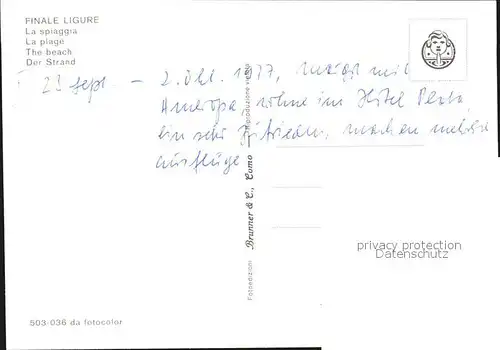 FINALE LIGURE
La spiaggia
La plage
The beach
Der Strand
23 Sept. – 2. Okt. 1977, mit
Ameropa, wohne im Hotel
bin sehr zufrieden, machen mehrere
Ausflüge
Fotoedizioni Brunner & C., Como Riproduzione vietata
privacy protection
Datenschutz
503-036 da fotocolor